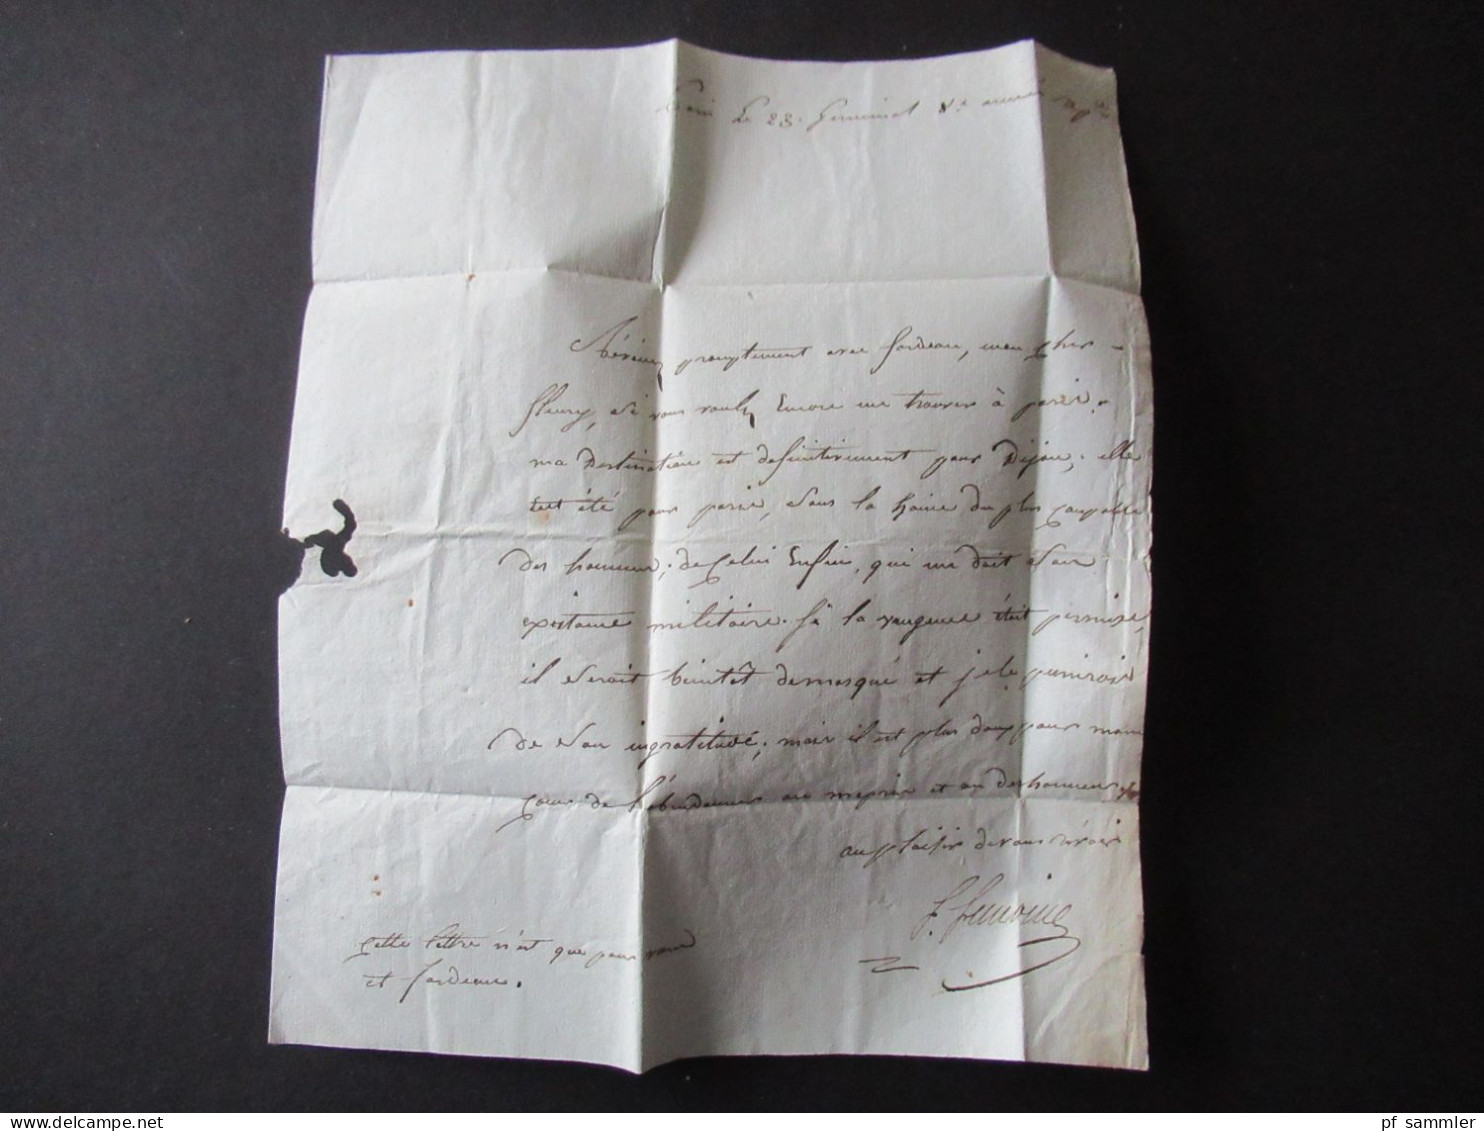 Paris Le 23. Germinal 8e année
promptement avec fardeau, mon cher
fleury, si vous voulez Encore me trouver à paris.
ma Destination est definitivement pour Dijon; elle
Eut été pour paris, sans la haine du plus Coupable
des hommes; de Celui Enfin, qui me doit son
existence militaire. Si la vengence étoit permise,
il seroit bientôt demasqué et je le punirois
de son ingratitude; mais il est plus doux pour mon
Coeur de l'abandonner au mepris et au deshonneur
au plaisir de vous revoir
Cette lettre n'est que pour vous
et fardeau.
pf sammler